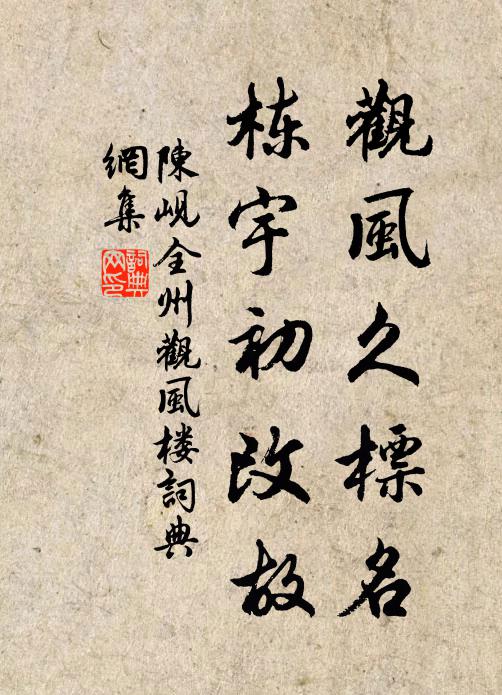 觀風久標名
栋宇初改故
陳峴全州觀風楼詞典
網集
詞典網印